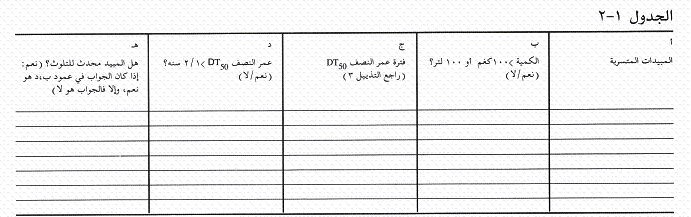 الجدول ١-٢
أ
المبيدات المتسربة
ب
الكمية >١٠٠كغم أو ١٠٠ لتر؟
(نعم/لا)
ج
فترة عمر النصف DT50
(راجع التذييل ٣)
د
عمر النصف DT50 >٢/١ سنه؟
(نعم/لا)
هـ
هل المبيد محدث للتلوث؟ (نعم:
إذا كان الجواب في عمود ب،د هو
نعم، وإلا فالجواب هو لا)